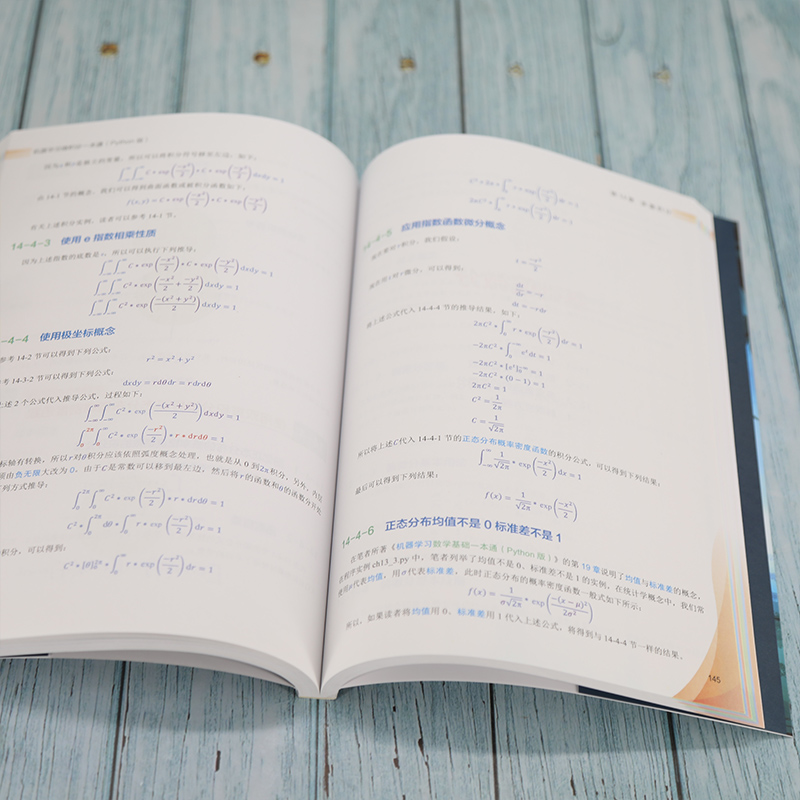 机器学习微积分一本通（Python 版）
∫∫ C * exp(-x²/2) * C * exp(-y²/2) dxdy = 1
在 14-1 节的概念，我们可以得到
f(x,y) = C * exp(-x²/2) * C * exp(-y²/2)
有关上述积分实例，读者可以参考 14-1 节。
14-4-3 使用 e 指数相乘性质
因为上述指数的底数是 e，所以可以执行下列推导：
∫_{-∞}^{∞} ∫_{-∞}^{∞} C * exp(-x²/2) * C * exp(-y²/2) dxdy = 1
∫_{-∞}^{∞} ∫_{-∞}^{∞} C² * exp(-x²/2 + -y²/2) dxdy = 1
∫_{-∞}^{∞} ∫_{-∞}^{∞} C² * exp(-(x² + y²)/2) dxdy = 1
-4-4 使用极坐标概念
参考 14-2 节可以得到下列公式：
r² = x² + y²
考 14-3-2 节可以得到下列公式：
dxdy = rdθdr = rdrdθ
上述 2 个公式代入推导公式，过程如下：
∫_{-∞}^{∞} ∫_{-∞}^{∞} C² * exp(-(x² + y²)/2) dxdy = 1
∫_0^{2π} ∫_0^{∞} C² * exp(-r²/2) * r * drdθ = 1
标轴有转换，所以 r 对 θ 积分应该依照弧度概念处理，也就是从 0 到 2π 积分，另外，
须由负无限大改为 0，由于 C 是常数可以移到最左边，然后将 r 的函数和 θ 的函数分开
列方式推导：
∫_0^{2π} ∫_0^{∞} C² * exp(-r²/2) * r * drdθ = 1
C² * ∫_0^{2π} dθ * ∫_0^{∞} r * exp(-r²/2) dr = 1
积分，可以得到：
C² * [θ]_0^{2π} * ∫_0^{∞} r * exp(-r²/2) dr = 1
C² * 2π * ∫_0^{∞} r * exp(-r²/2) dr = 1
2πC² * ∫_0^{∞} r * exp(-r²/2) dr = 1
14-4-5 应用指数函数微分概念
积分，我们假设：
t = -r²/2
微分，可以得到：
dt/dr = -r
dt = -rdr
将上述公式代入 14-4-4 节的推导结果，如下：
2πC² * ∫_0^{∞} r * exp(-r²/2) dr = 1
-2πC² * ∫_0^{-∞} e^t dt = 1
-2πC² * [e^t]_0^{-∞} = 1
-2πC² * (0 - 1) = 1
2πC² = 1
C² = 1/2π
C = 1/√2π
所以将上述 C 代入 14-4-1 节的正态分布概率密度函数的积分公式，可以得到下列结果：
∫_{-∞}^{∞} 1/√2π * exp(-x²/2) dx = 1
最后可以得到下列结果：
f(x) = 1/√2π * exp(-x²/2)
14-4-6 正态分布均值不是 0 标准差不是 1
在笔者所著《机器学习数学基础一本通（Python 版）》的第 19 章说明了均值与标准差的概念，
在程序实例 ch13_3.py 中，笔者列举了均值不是 0、标准差不是 1 的实例，在统计学概念中，我们常
使用 μ 代表均值，用 σ 代表标准差，此时正态分布的概率密度函数一般式如下所示：
f(x) = 1/σ√2π * exp(-(x - μ)²/2σ²)
所以，如果读者将均值用 0、标准差用 1 代入上述公式，将得到与 14-4-4 节一样的结果。
145